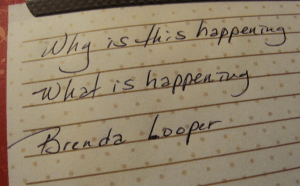 Why is this happening
What is happening
Brenda Looper